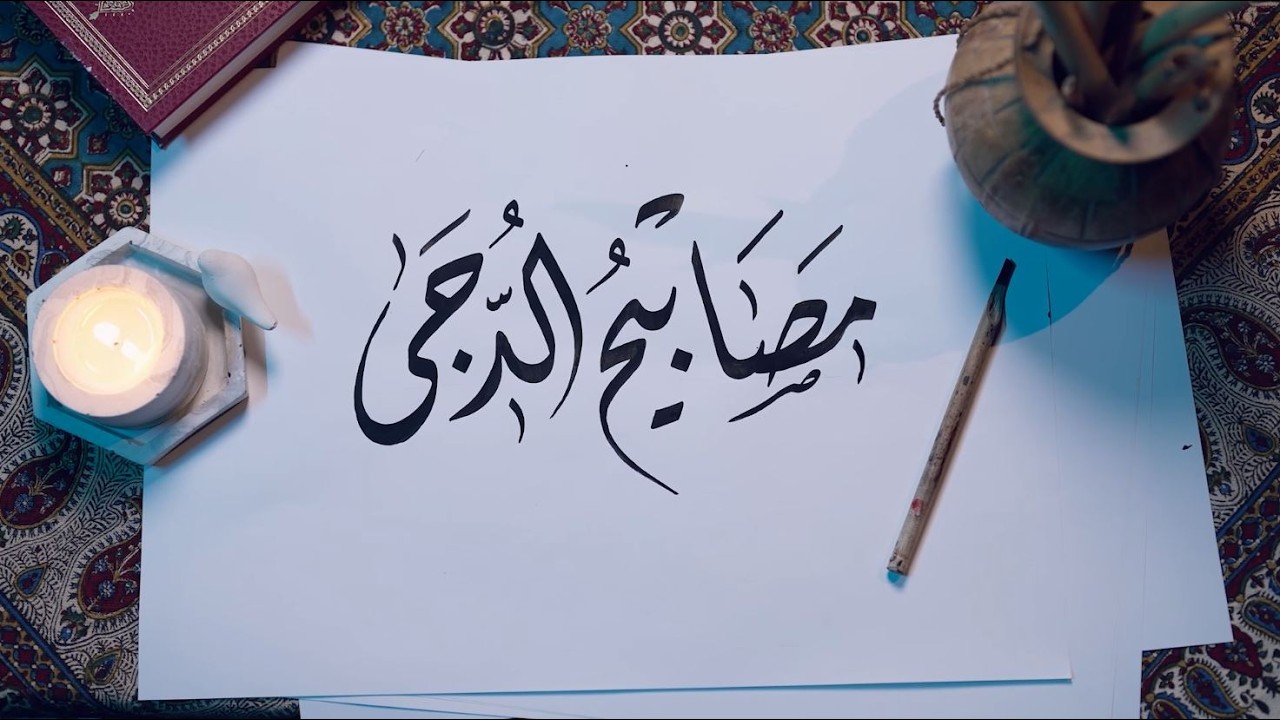 مَصَابِيحُ الدُّجَى